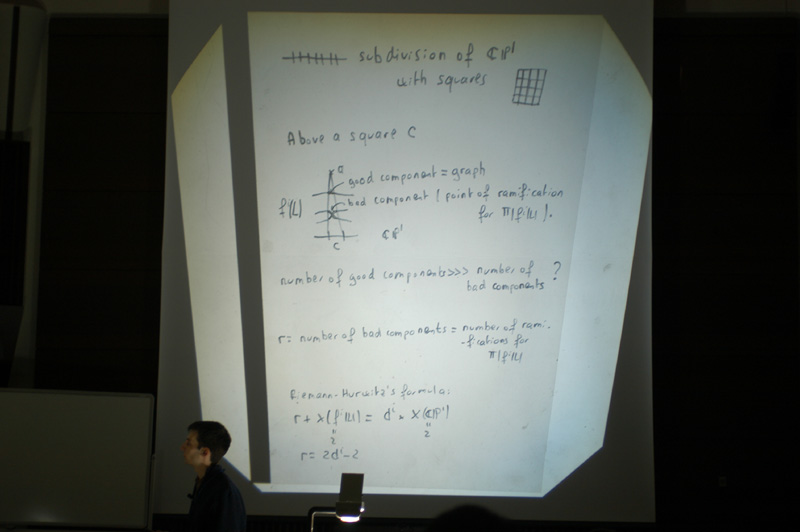 subdivision of ℂℙ¹
with squares
Above a square C
a
good component = graph
bad component ( point of ramification
for π|fⁱ(L) ).
fⁱ(L)
ℂℙ¹
C
number of good components >>> number of
bad components ?
r = number of bad components = number of rami-
-fications for
π|fⁱ(L)
Riemann-Hurwitz's formula:
r + χ(fⁱ(L)) = dⁱ × χ(ℂℙ¹)
" "
2 2
r = 2dⁱ-2